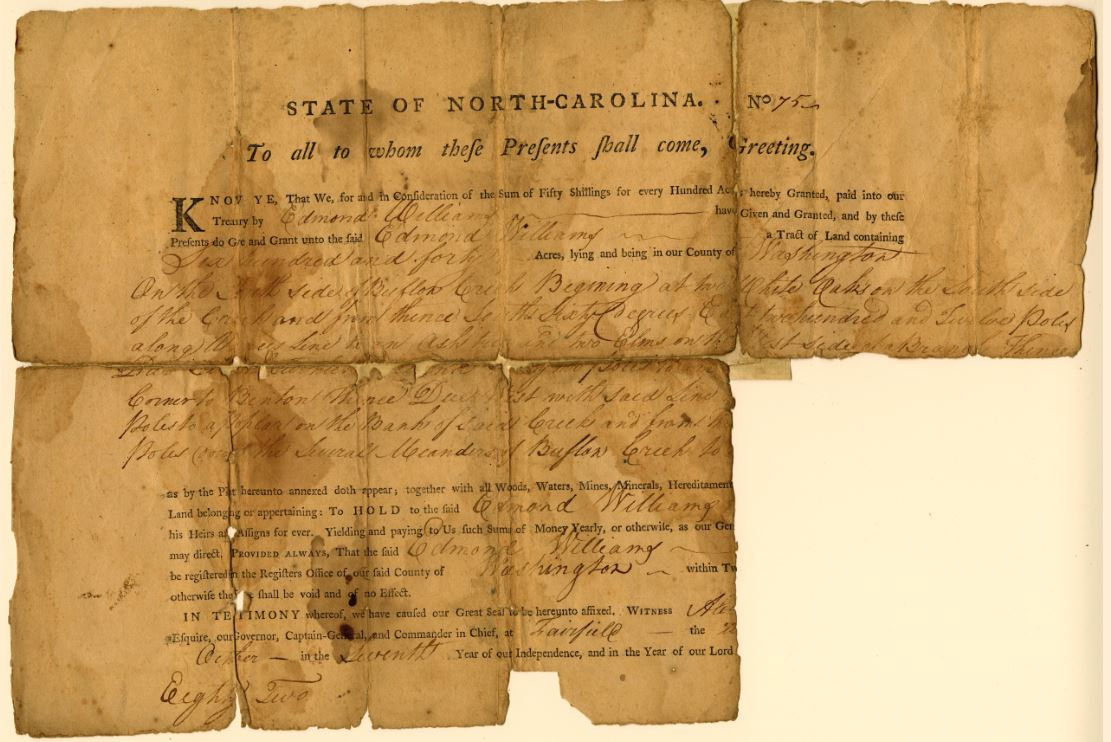 STATE OF NORTH-CAROLINA. No 75
To all to whom theſe Preſents ſhall come, Greeting.
KNOW YE, That We, for and in Conſideration of the Sum of Fifty Shillings for every Hundred Acres hereby Granted, paid into our
Treaſury by Edmond Williams have Given and Granted, and by theſe
Preſents do Give and Grant unto the ſaid Edmond Williams a Tract of Land containing
Six hundred and forty Acres, lying and being in our County of Washington
On the side of Buffloe Creek Begining at two White Oaks on the South side
of the Creek and from thence Sixty Degrees two hundred and Twelve Poles
along line Ash two Elms on side of a Branch Thence
Due
Corner to Benton Thence Due West with said Line
Poles to a poplar on the Bank of Said Creek and from
Poles the Several Meanders of Buffloe Creek to
as by the Plat hereunto annexed doth appear; together with all Woods, Waters, Mines, Minerals, Hereditament
Land belonging or appertaining: To HOLD to the ſaid Edmond Williams
his Heirs and Aſſigns for ever. Yielding and paying to Us ſuch Sums of Money Yearly, or otherwiſe, as our Gen
may direct. PROVIDED ALWAYS, That the ſaid Edmond Williams
be regiſtered in the Regiſters Office of our ſaid County of Washington within Tw
otherwiſe the ſhall be void and of no Effect.
IN TESTIMONY whereof, we have cauſed our Great Seal to be hereunto affixed. WITNESS Ale
Eſquire, our Governor, Captain-General, and Commander in Chief, at Fairfield the
October in the Seventh Year of our Independence, and in the Year of our Lord
Eighty Two